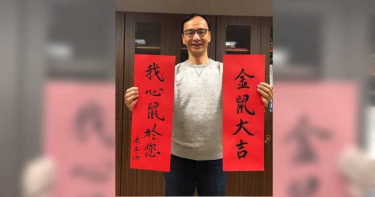 金鼠大吉
我心鼠於您